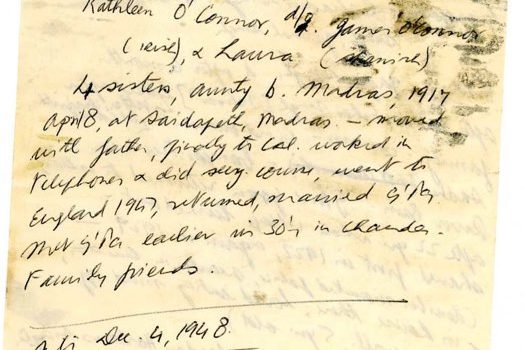 Kathleen O'Connor, d/g. James O'Connor
(irish), & Laura (spanish)
4 sisters, aunty b. Madras, 1917
April 8, at Saidapeth, Madras. — moved
with father, finally to Cal. worked in
Telephones & did secy. course, went to
England 1947, returned, married G'Pa
Met G'Pa earlier in 30's in Chander.
Family friends.
Dec. 4, 1948.